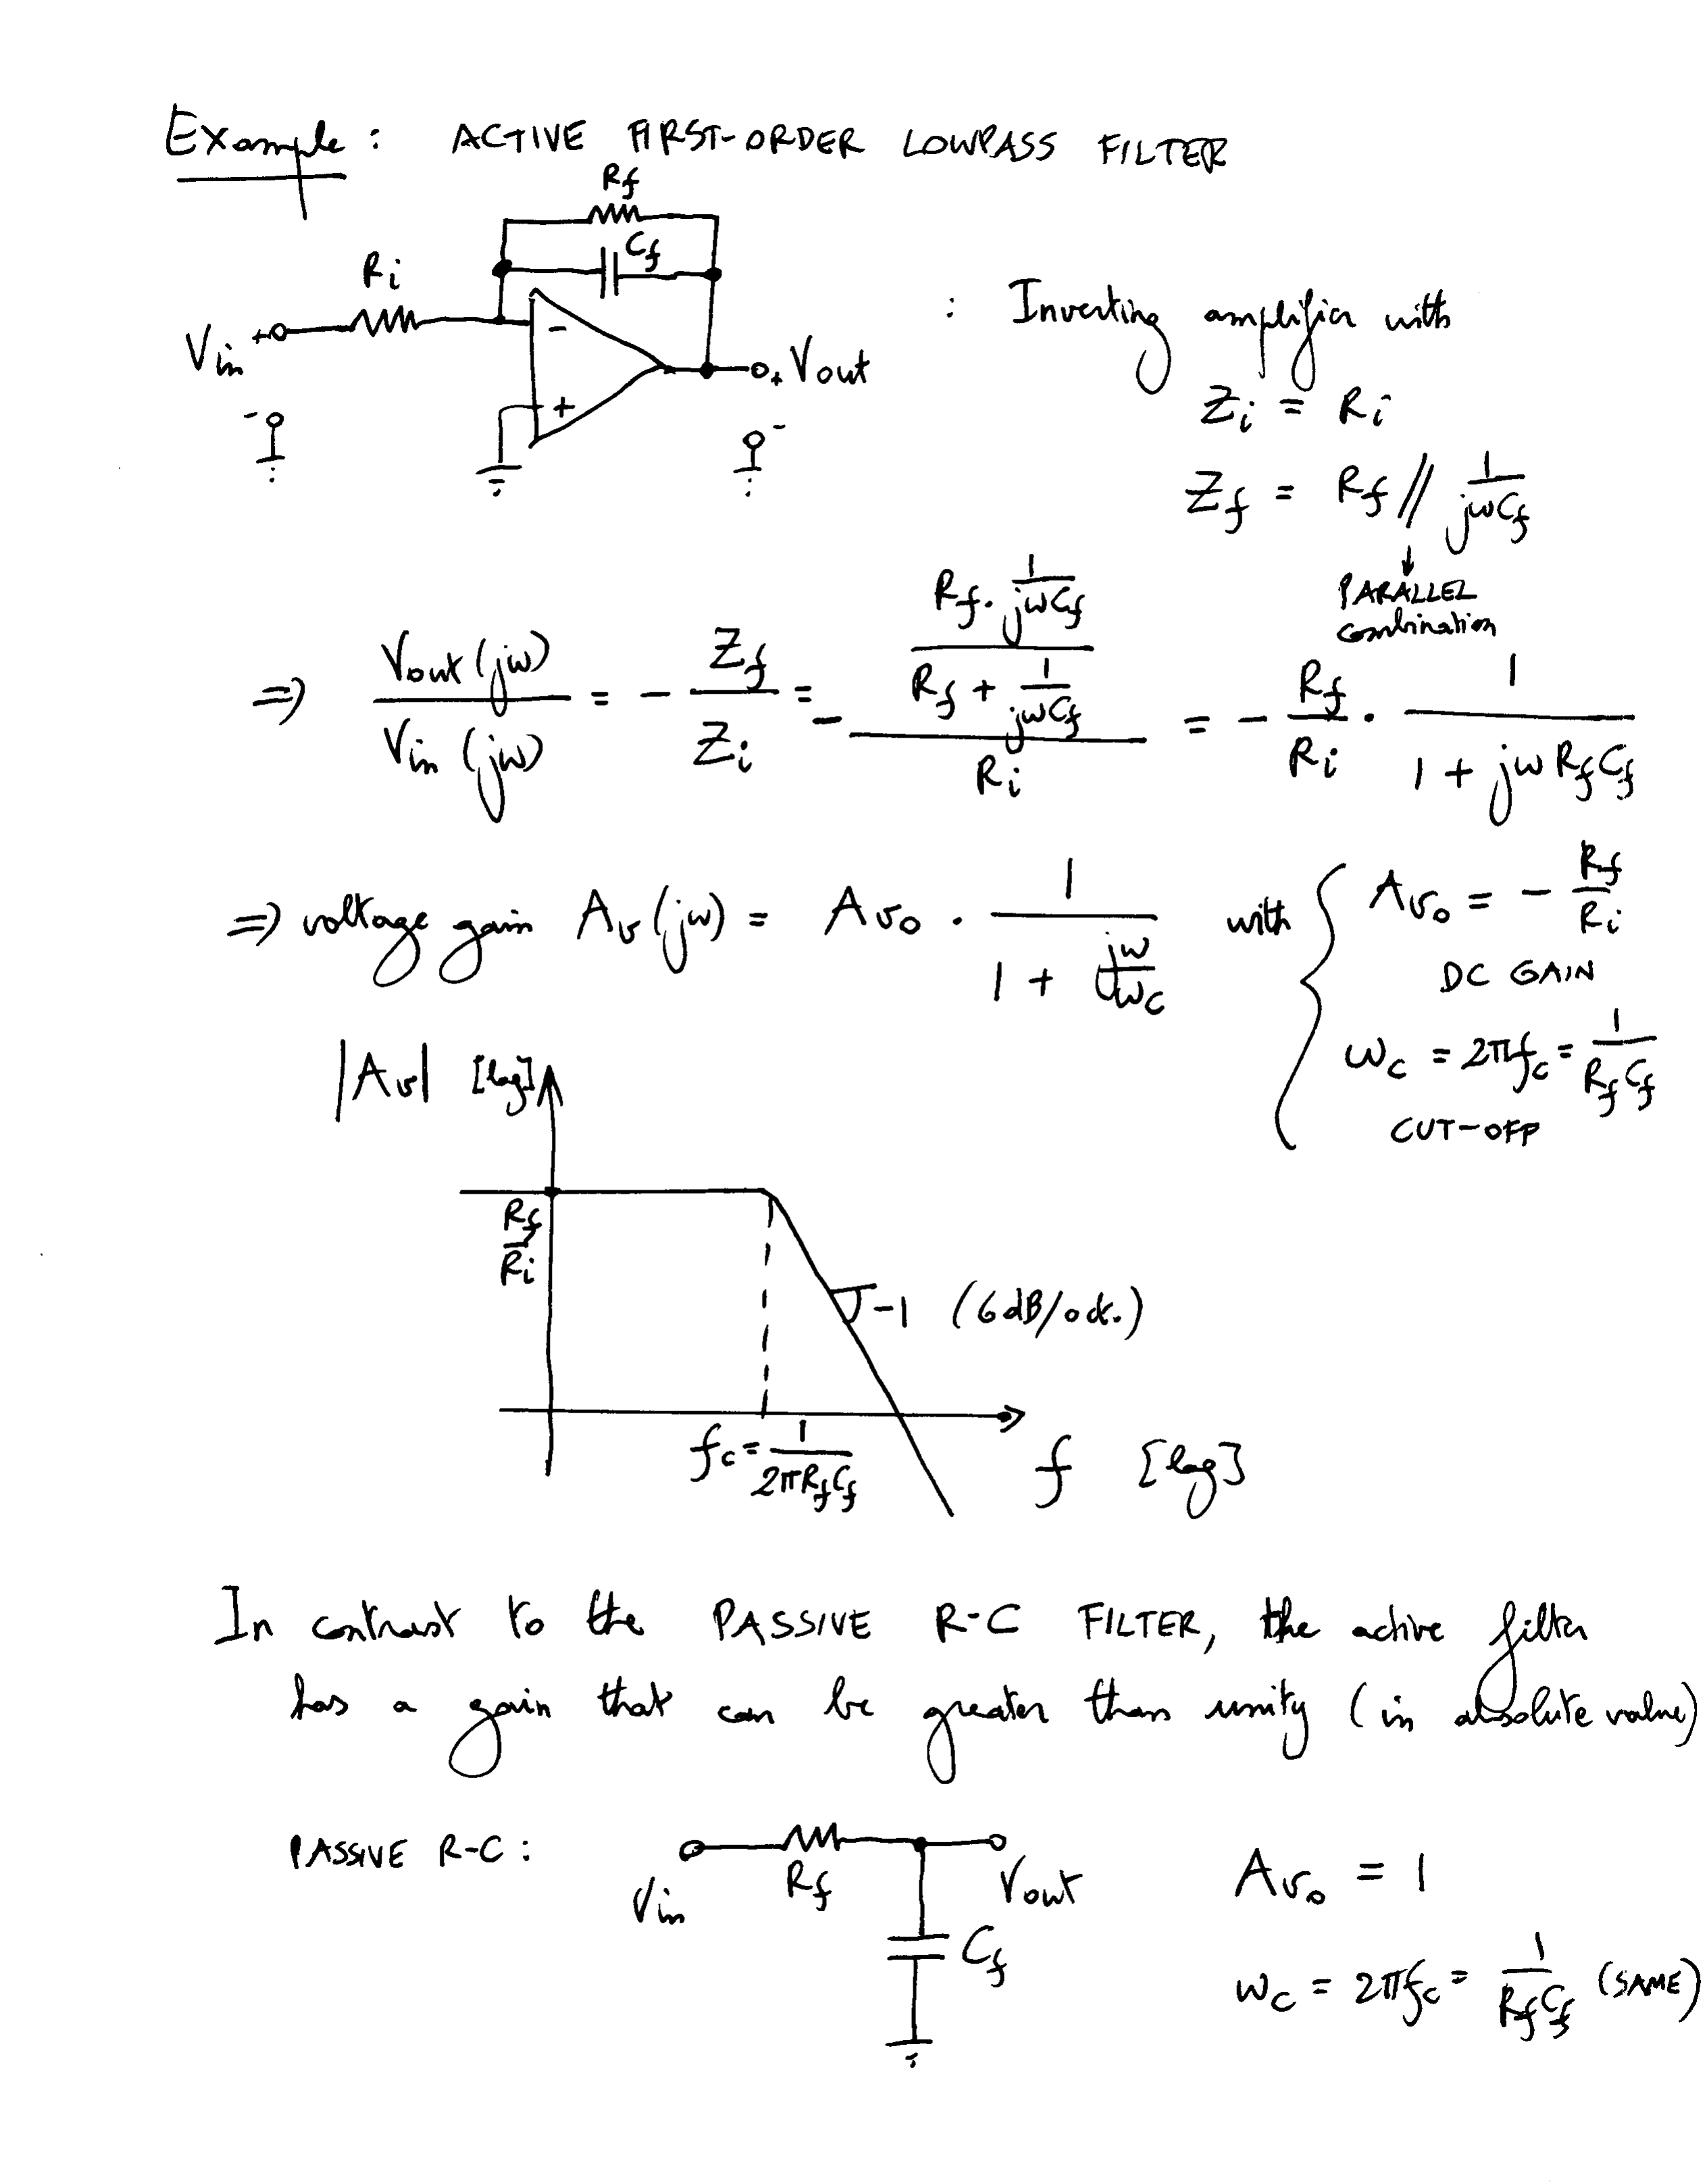 Example : ACTIVE FIRST-ORDER LOWPASS FILTER
Rf
Cf
Ri
Vin + - + Vout
- + -
: Inverting amplifier with
Zi = Ri
Zf = Rf // 1/(jωCf)
↓
PARALLEL
combination
⇒ Vout(jω)/Vin(jω) = - Zf/Zi = - ((Rf · 1/(jωCf))/(Rf + 1/(jωCf)))/Ri = - Rf/Ri · 1/(1 + jωRfCf)
⇒ voltage gain Av(jω) = Avo · 1/(1 + jω/ωc) with { Avo = - Rf/Ri
DC GAIN
ωc = 2πfc = 1/(RfCf)
CUT-OFF
|Av| [log]
Rf/Ri
-1 (6dB/oct.)
fc = 1/(2πRfCf)
f [log]
In contrast to the PASSIVE R-C FILTER, the active filter
has a gain that can be greater than unity (in absolute value)
PASSIVE R-C :
Vin Rf Vout
Cf
Avo = 1
ωc = 2πfc = 1/(RfCf) (SAME)